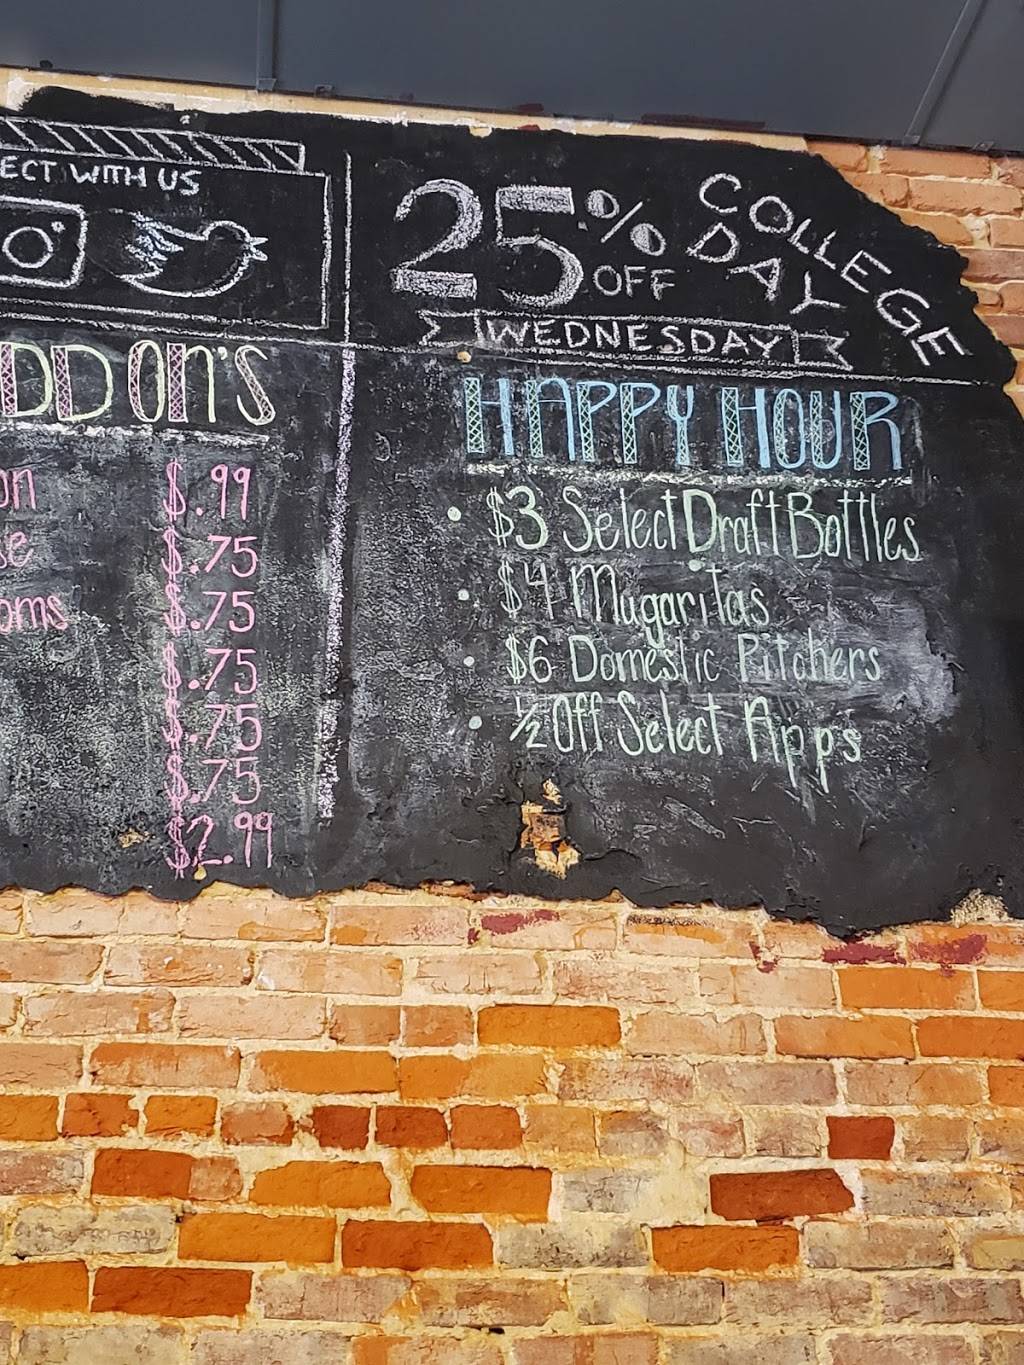 ECT WITH US
25% OFF
COLLEGE
DAY
WEDNESDAY
DD ON'S
on $.99
se $.75
oms $.75
$.75
$.75
$.75
$2.99
HAPPY HOUR
• $3 Select Draft Bottles
• $4 Mugaritas
• $6 Domestic Pitchers
• ½ Off Select Apps